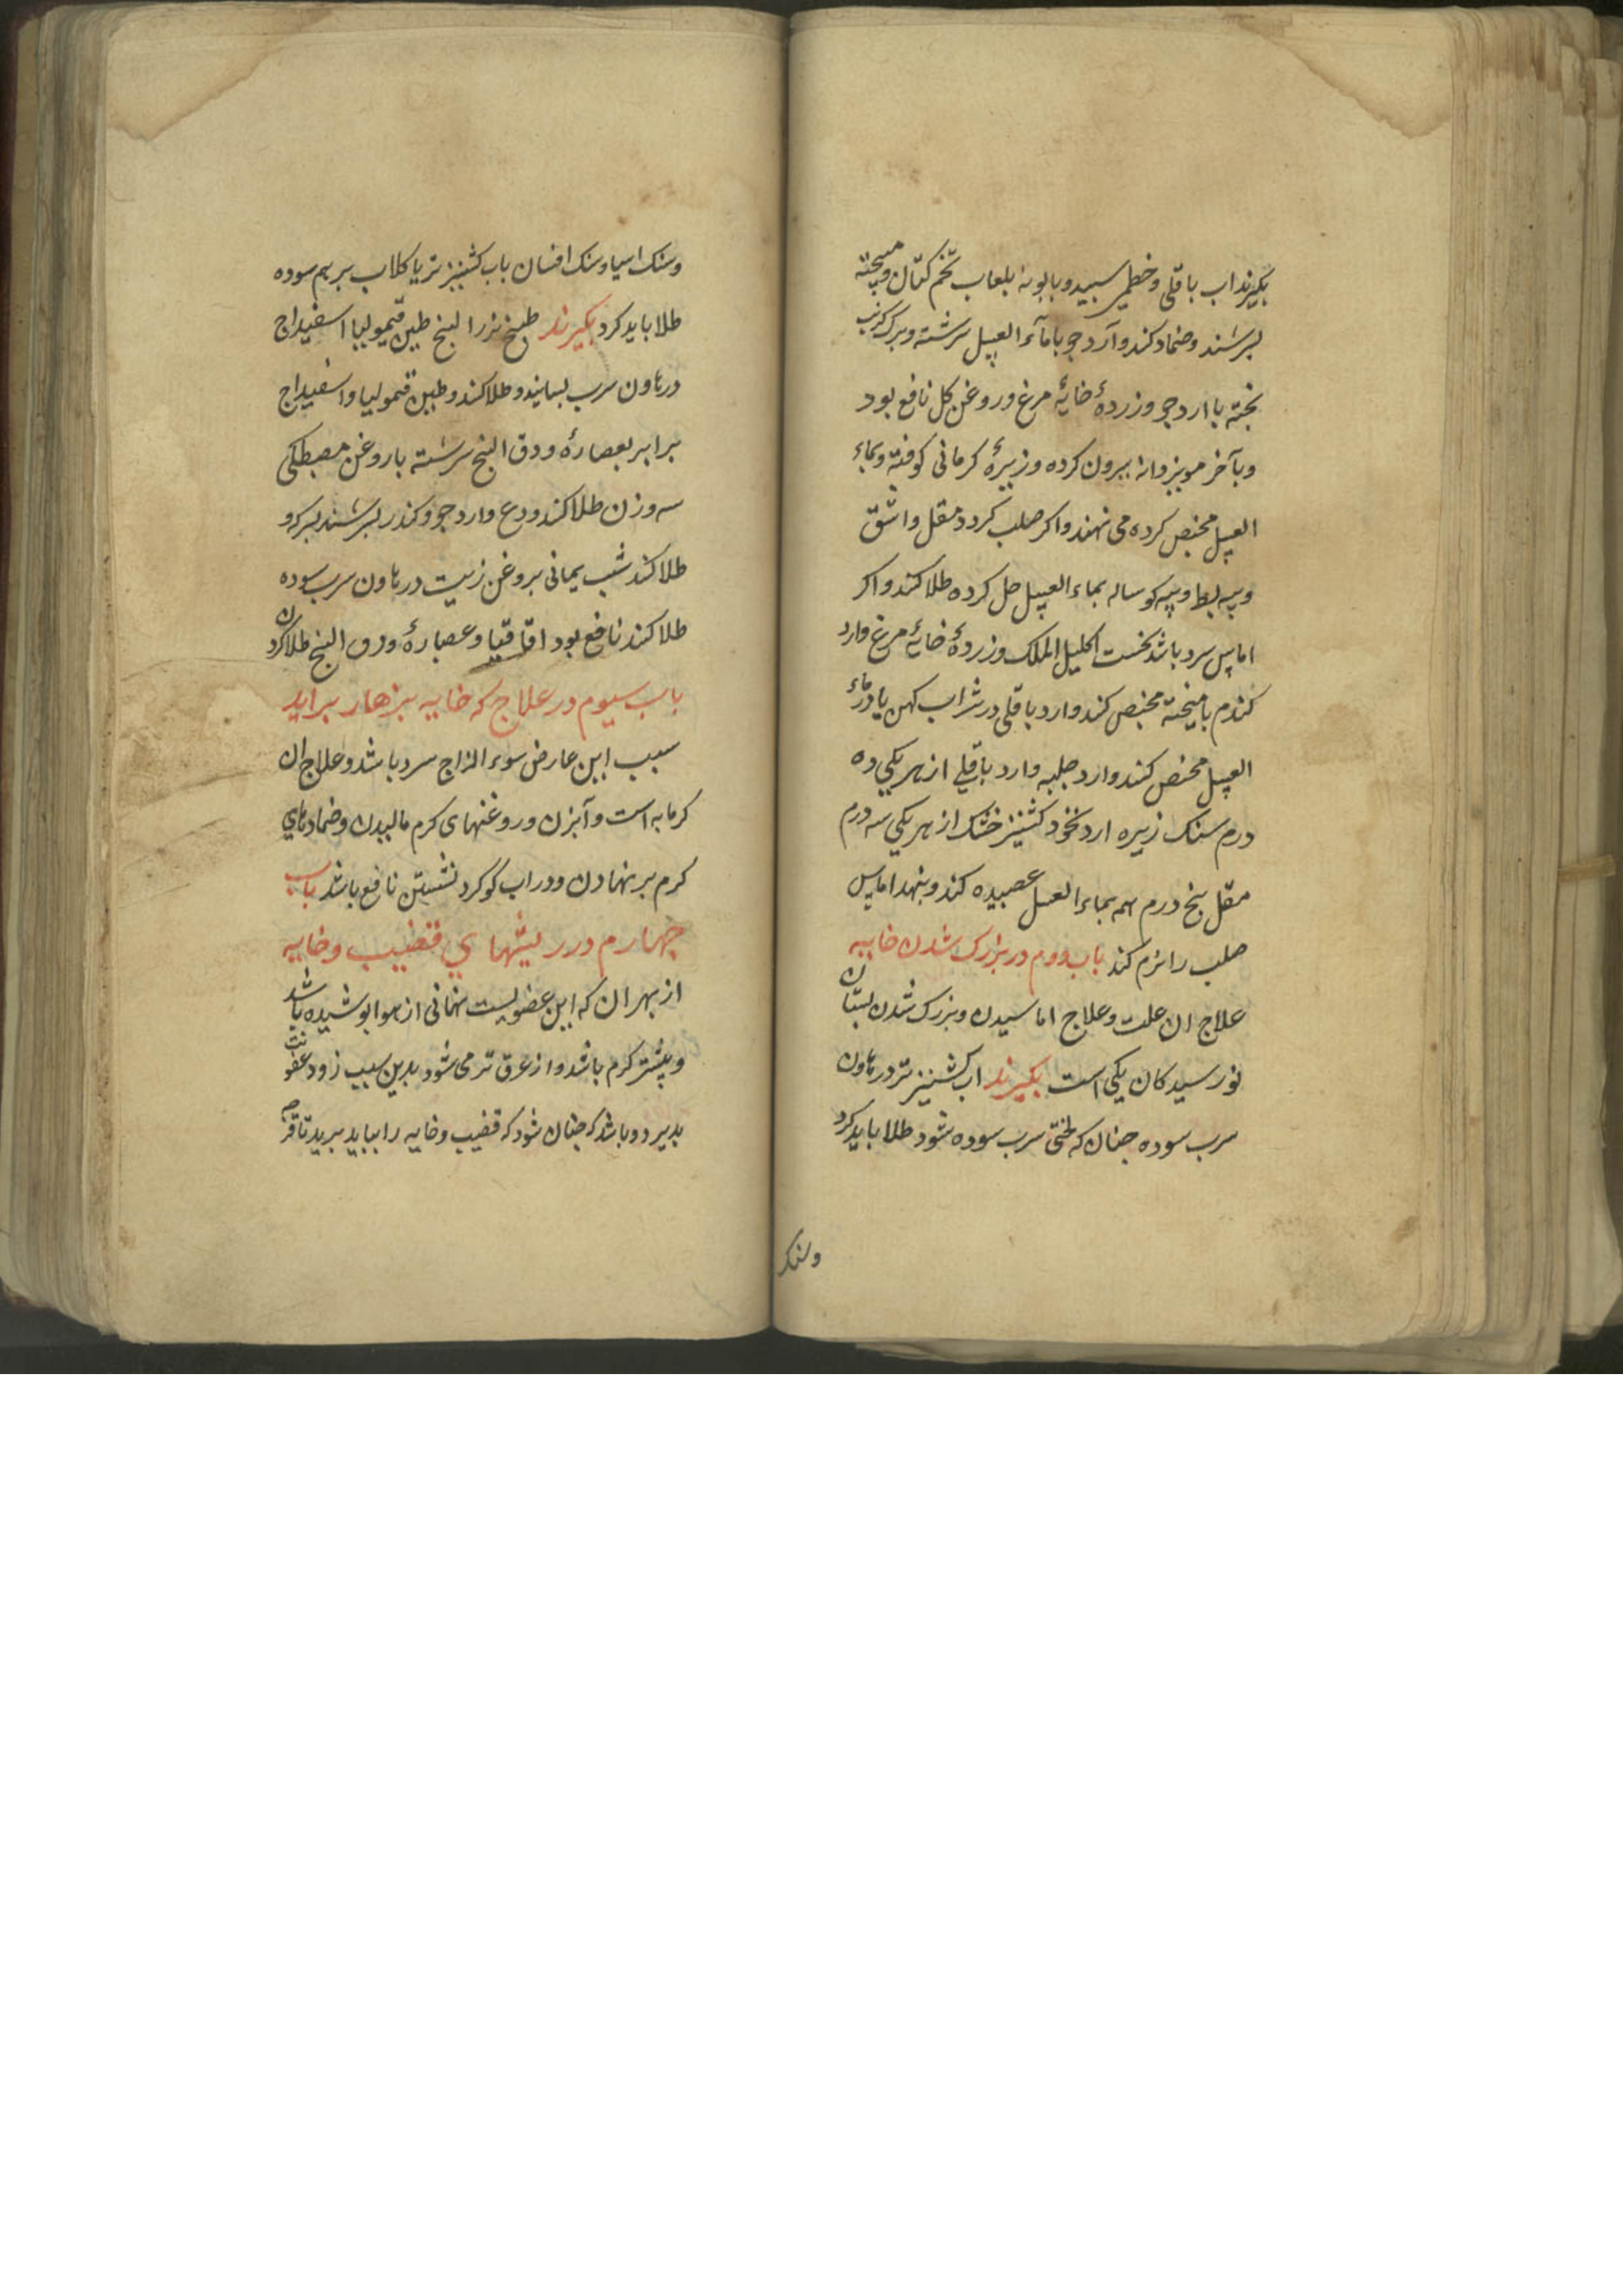 بکیرند اب باقلی و خطمی سبید و بابونه بلعاب تخم کتان و میبخته
بسرشند و ضماد کنند و آرد جو با ماء العسل سرشته و برک کرنب
بخته با ارد جو و زردهٔ خایهٔ مرغ و روغن کل نافع بود
و بآخر مویز دانه بیرون کرده و زیرهٔ کرمانی کوفته و بماء
العسل مخبص کرده می نهند و اکر صلب کردد مقل و اشق
و بیه بط و بیه کوساله بماء العسل حل کرده طلا کنند و اکر
اماس سرد باشد نخست اکلیل الملک و زردهٔ خایهٔ مرغ و ارد
کندم بامیخته مخبص کنند و ارد باقلی در شراب کهن یا در ماء
العسل مخبص کنند و ارد حلبه و ارد باقلی از هر یکی ده
درم سنک زیره ارد نخود کشنیز خشک از هر یکی سه درم
مقل بنج درم همه بماء العسل عصیده کنند و بنهد اماس
صلب را نرم کند باب دوم در بزرک شدن خایه
علاج ان علت و علاج اماسیدن و بزرک شدن بستان
نورسیدکان یکی است بکیرند اب کشنیز تر در هاون
سرب سوده جنان که لختی سرب سوده شود طلا باید کرد
وسنک
وسنک اسیا و سنک افسان باب کشنیز تر یا کلاب بر هم سوده
طلا باید کرد بکیرند طبیخ بزر البنج طین قیمولیا اسفیداج
در هاون سرب بسایند و طلا کنند و طین قیمولیا و اسفیداج
برابر بعصارهٔ ورق البنج سرشته با روغن مصطکی
سه وزن طلا کنند ودع و ارد جو و کندر بسرشند بسرکه و
طلا کنند شب یمانی بروغن زیت در هاون سرب سوده
طلا کنند نافع بود اقاقیا و عصارهٔ ورق البنج طلا کردن
باب سیوم در علاج که خایه بزهار براید
سبب این عارض سوء المزاج سرد باشد و علاج ان
کرمابه است و آبزن و روغنهای کرم مالیدن و ضمادهای
کرم بر نهادن و در اب کوکرد نشستن نافع باشد باب
جهارم در ریشهای قضیب و خایه
از بهر ان که این عضویست نهانی از هوا بوشیده باشد
و بیشتر کرم باشد و از عرق تر می شود بدین سبب زود عفونت
بدیرد و باشد که جنان شود که قضیب و خایه را بباید برید تا قرحه